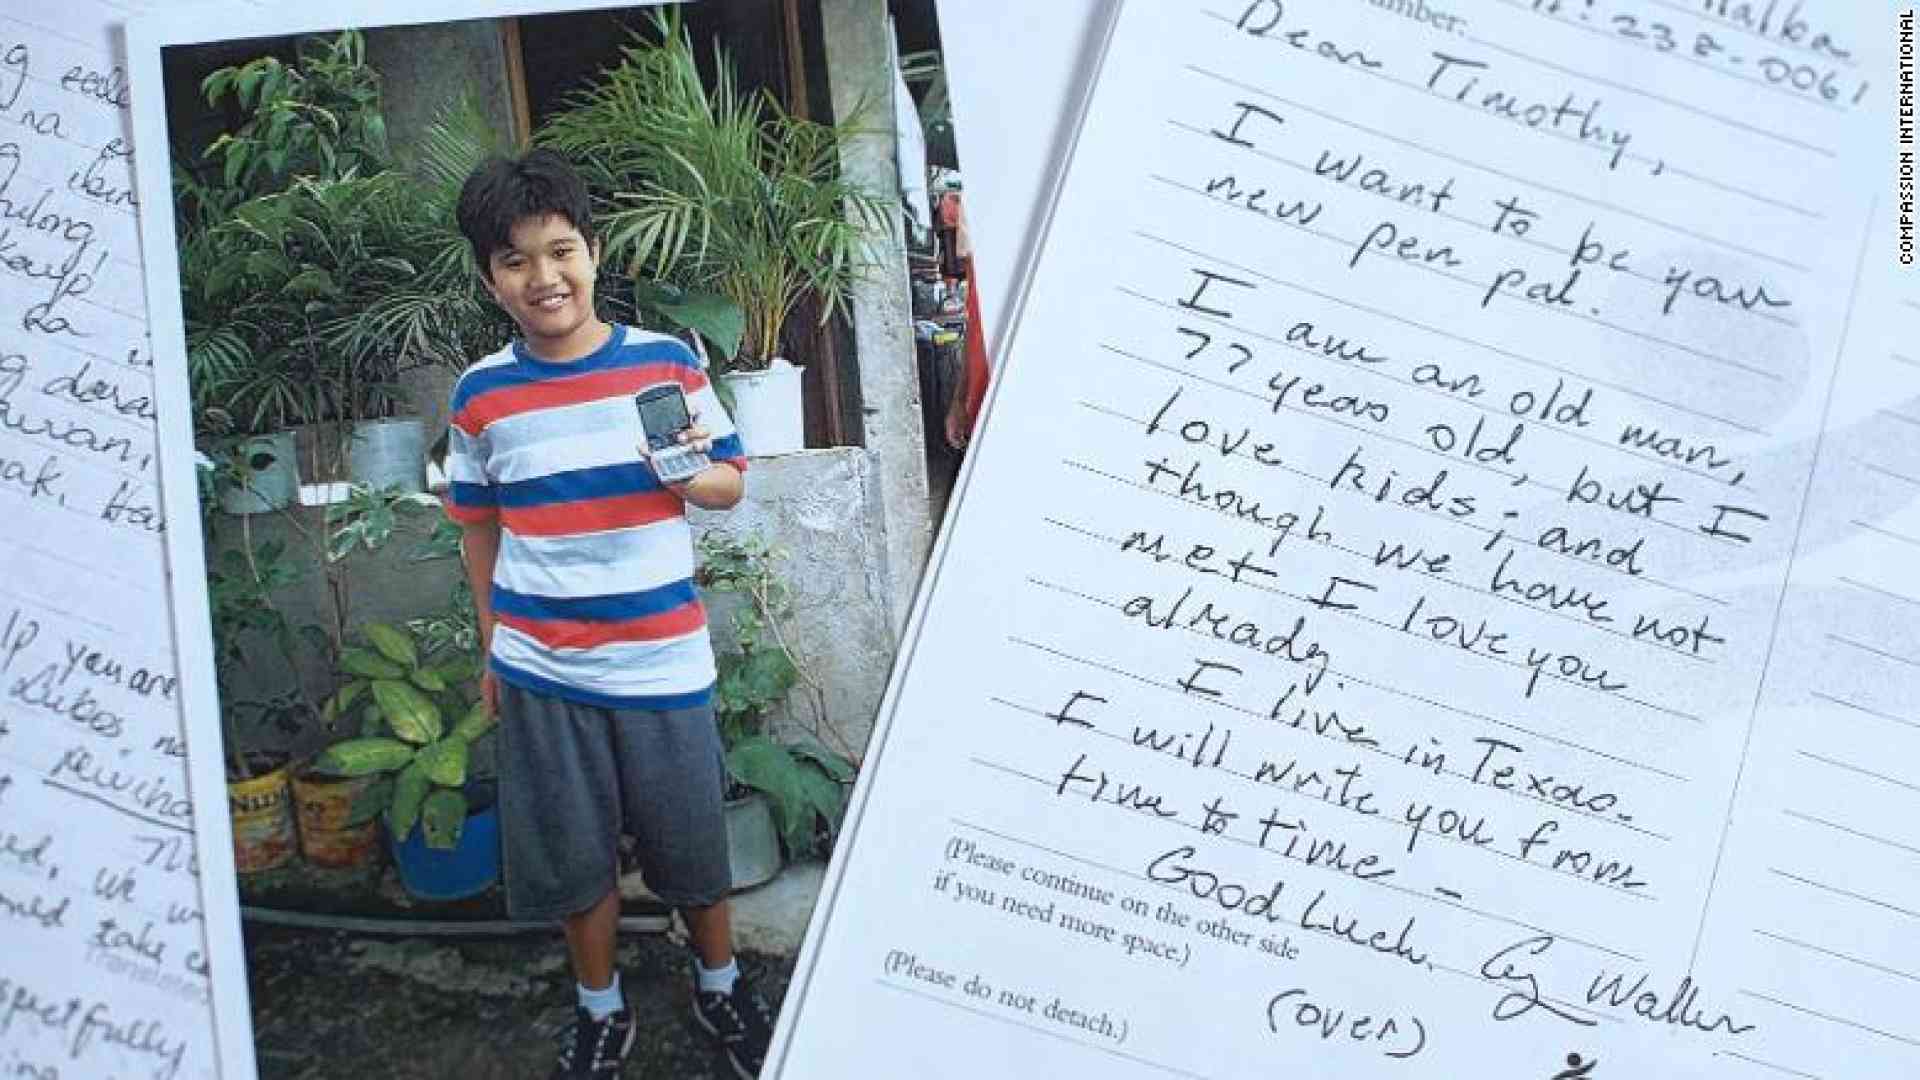 g
na
ibin
tulong,
sa
g
ak. Ha
lp you are
Lukas, na
we
take c
pectfully
umber:
238-0061
Dear Timothy,
I want to be your
new pen pal.
I am an old man,
77 years old, but I
love kids; and
though we have not
met I love you
already.
I live in Texas.
I will write you from
time to time -
Good Luck. G Walker
(Please continue on the other side
if you need more space.)
(over)
(Please do not detach.)
COMPASSION INTERNATIONAL